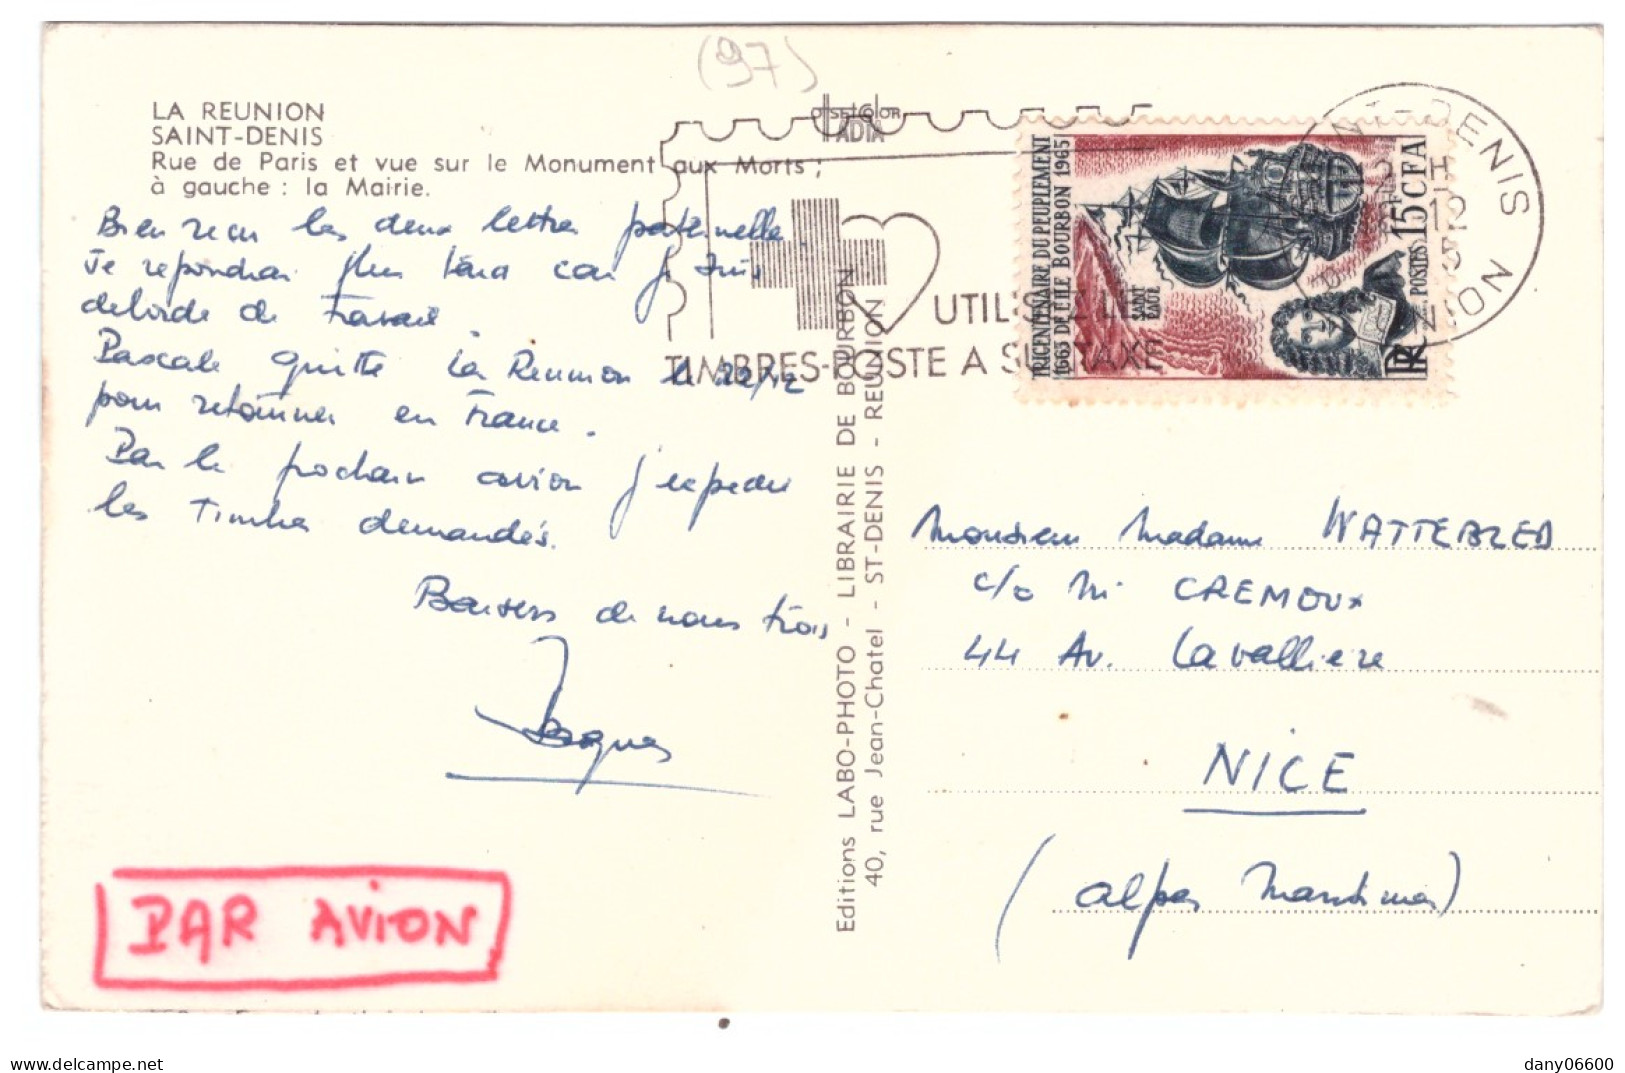 (97)
LA REUNION
SAINT-DENIS
Rue de Paris et vue sur le Monument aux Morts ;
à gauche : la Mairie.
Bien recu les deux lettres paternelle.
Je repondrai plus tard car je suis
deborde de Travail.
Pascale quitte La Reunion le 22/12
pour retourner en France.
Par le prochain avion j'expedie
les Timbres demandés.
Baisers de nous trois
Jacques
PAR AVION
Editions LABO-PHOTO - LIBRAIRIE DE BOURBON
40, rue Jean-Chatel - ST-DENIS - REUNION
OFFSETCOLOR
ADIA
UTILISEZ LES
TIMBRES-POSTE A SURTAXE
TRICENTENAIRE DU PEUPLEMENT
1665 DE L'ILE BOURBON 1965
SAINT
PAUL
POSTES 15F CFA
RF
SAINT-DENIS
12 H
12
REUNION
Monsieur Madame WATTEBLED
c/o Mr CREMOUX
44 Av. Lavalliere
NICE
(Alpes Maritimes)
dany06600